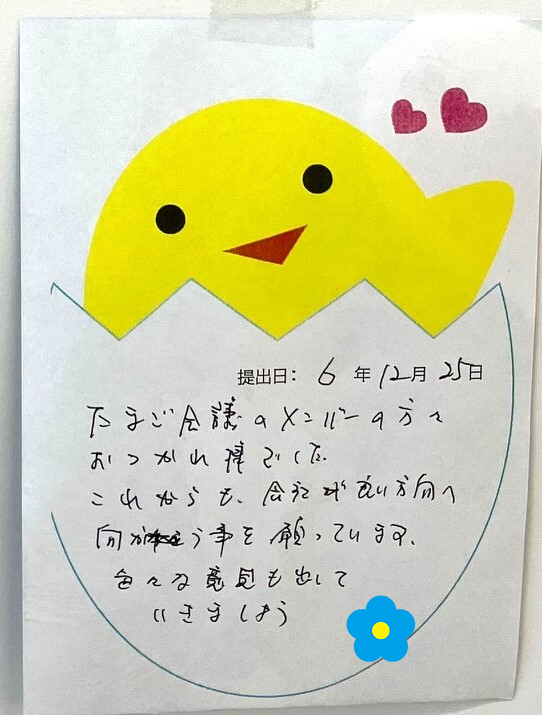 提出日： 6 年 12月 25日
たまご会議のメンバーの方々
おつかれ様でした。
これからも、会社が良い方向へ
向かう事を願っています。
色々な意見も出して
いきましょう